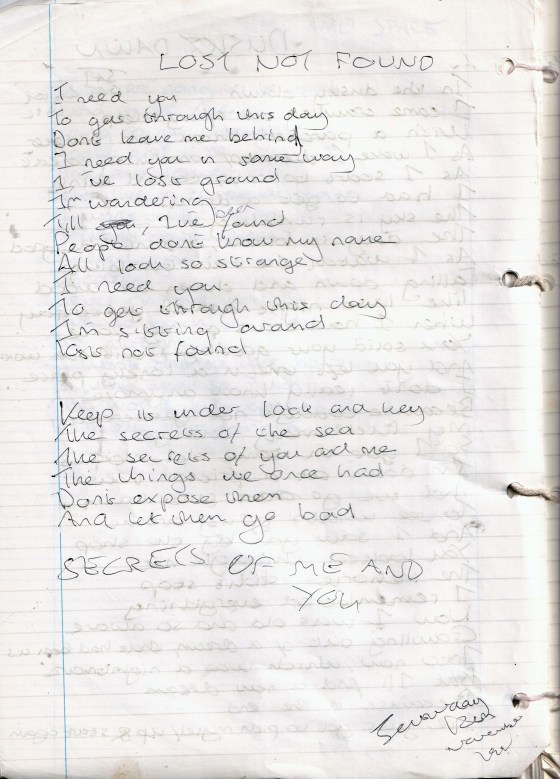 LOST NOT FOUND
I need you
To get through this day
Don't leave me behind
I need you in some way
I've lost ground
I'm wandering
Till, I've been found
People don't know my name
All look so strange
I need you
To get through this day
I'm sitting around
Lost not found
Keep it under lock and key
The secrets of the sea
The secrets of you and me
The things we once had
Don't expose them
And let them go bad
SECRETS OF ME AND
YOU
Saturday
November